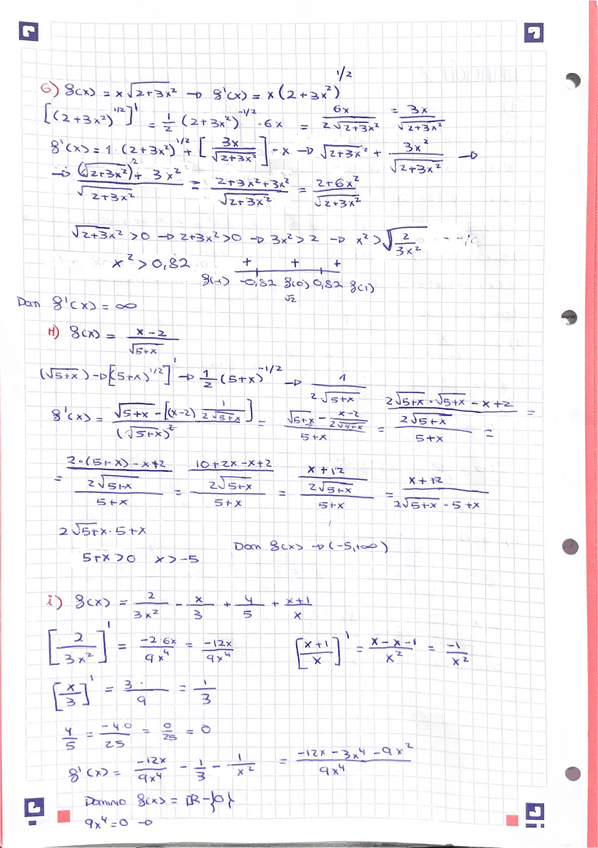 G) f(x) = x√2+3x² → f'(x) = x(2+3x²)^1/2
[(2+3x²)^1/2]' = 1/2 (2+3x²)^-1/2 · 6x = 6x/2√2+3x² = 3x/√2+3x²
f'(x) = 1·(2+3x²)^1/2 + [3x/√2+3x²]·x → √2+3x² + 3x²/√2+3x² →
→ (√2+3x²)² + 3x²/√2+3x² = 2+3x²+3x²/√2+3x² = 2+6x²/√2+3x²
√2+3x² > 0 → 2+3x² > 0 → 3x² > 2 → x² > √2/3x²
x² > 0,82
+ + +
f(-1) -0,82 f(0) 0,82 f(1)
√2
Dom f'(x) = ∞
H) f(x) = x-2/√5+x
(√5+x) → [(5+x)^1/2]' → 1/2 (5+x)^-1/2 → 1/2√5+x
f'(x) = √5+x - [(x-2) 1/2√5+x]/(√5+x)² = √5+x - x-2/2√5+x/5+x = 2√5+x·√5+x - x+2/2√5+x/5+x =
= 2·(5+x)-x+2/2√5+x/5+x = 10+2x-x+2/2√5+x/5+x = x+12/2√5+x/5+x = x+12/2√5+x·5+x
2√5+x·5+x
5+x>0 x>-5 Dom f(x) → (-5,+∞)
i) f(x) = 2/3x² - x/3 + 4/5 + x+1/x
[2/3x²]' = -2·6x/9x⁴ = -12x/9x⁴ [x+1/x]' = x-x-1/x² = -1/x²
[x/3]' = 3·/9 = 1/3
4/5 = -4·0/25 = 0/25 = 0
f'(x) = -12x/9x⁴ - 1/3 - 1/x² = -12x-3x⁴-9x²/9x⁴
Dominio f(x) = ℝ-{0}
9x⁴=0 →